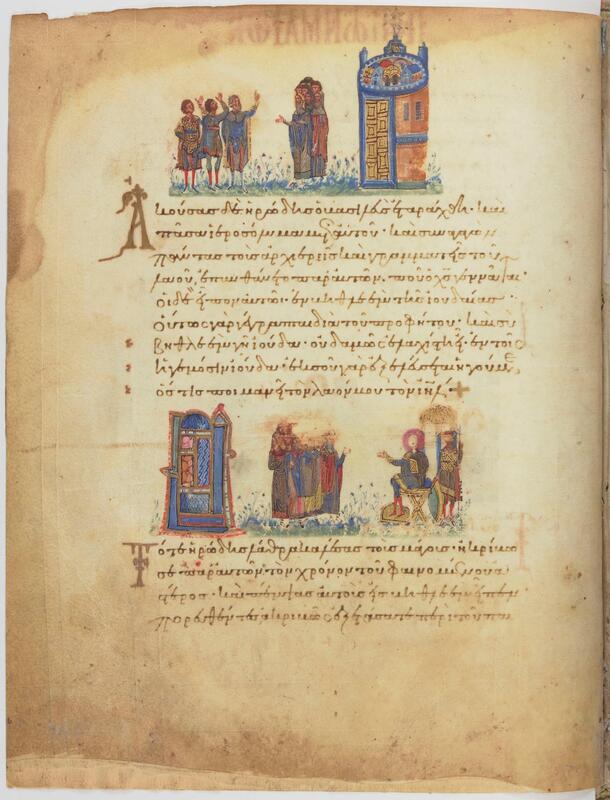 Ἀκούσας δὲ ἡρώδης ὁ βασιλεὺς ἐταράχθη· καὶ
πᾶσα ἱεροσόλυμα μετ' αὐτοῦ· καὶ συναγαγὼν
πάντας τοὺς ἀρχιερεῖς καὶ γραμματεῖς τοῦ
λαοῦ, ἐπυνθάνετο παρ' αὐτῶν. ποῦ ὁ χς γεννᾶται·
οἱ δὲ εἶπον αὐτῶ· ἐν βηθλεὲμ τῆς ἰουδαίας·
οὕτως γὰρ γέγραπται διὰ τοῦ προφήτου· καὶ σὺ
βηθλεὲμ γῆ ἰούδα· οὐδαμῶς ἐλαχίστη εἶ· ἐν τοῖς
ἡγεμόσιν ἰούδα· ἐκ σοῦ γὰρ ἐξελεύσεται ἡγούμεν
ὅς τις ποιμανεῖ τὸν λαόν μου τὸν ιηλ·
Τότε ἡρώδης λάθρα καλέσας τοὺς μάγους· ἠκρίβω
σε παρ' αὐτῶν τὸν χρόνον τοῦ φαινομένου ἀ
στέρος· καὶ πέμψας αὐτοὺς εἰς βηθλεὲμ εἶπεν
πορευθέντες ἀκριβῶς ἐξετάσατε περὶ τοῦ παι